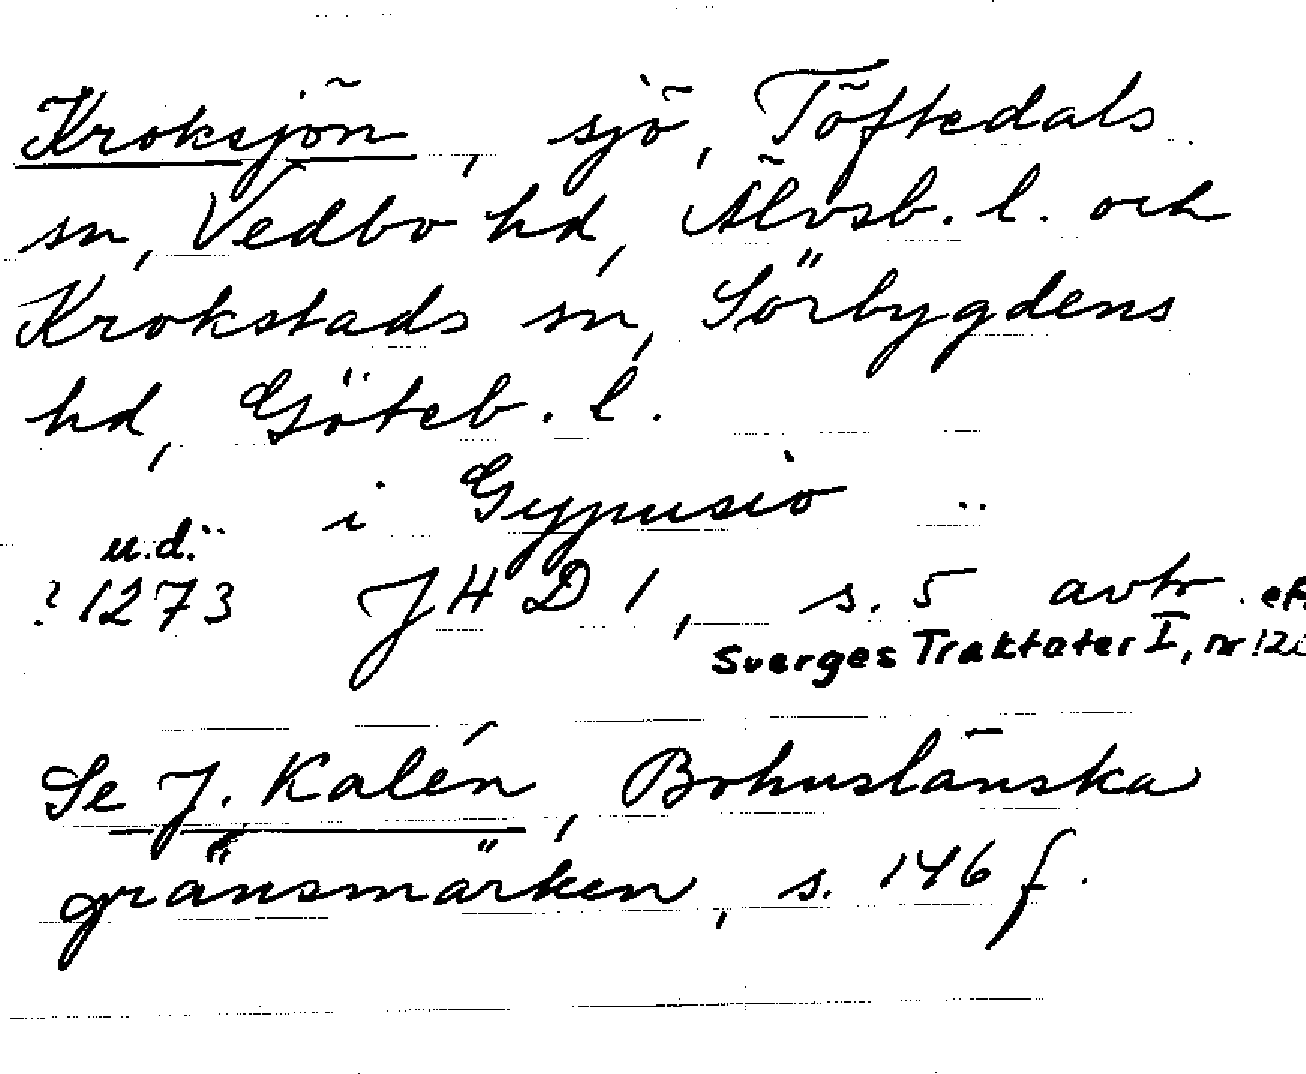 Kroksjön, sjö, Töftedals
sn, Vedbo hd, Älvsb. l. och
Krokstads sn, Sörbygdens
hd, Göteb. l.
i Gypusio
u.d.
? 1273 JHD 1, s. 5 avtr. eft.
Sverges Traktater I, nr 120
Se J. Kalén, Bohuslänska
gränsmärken, s. 146 f.